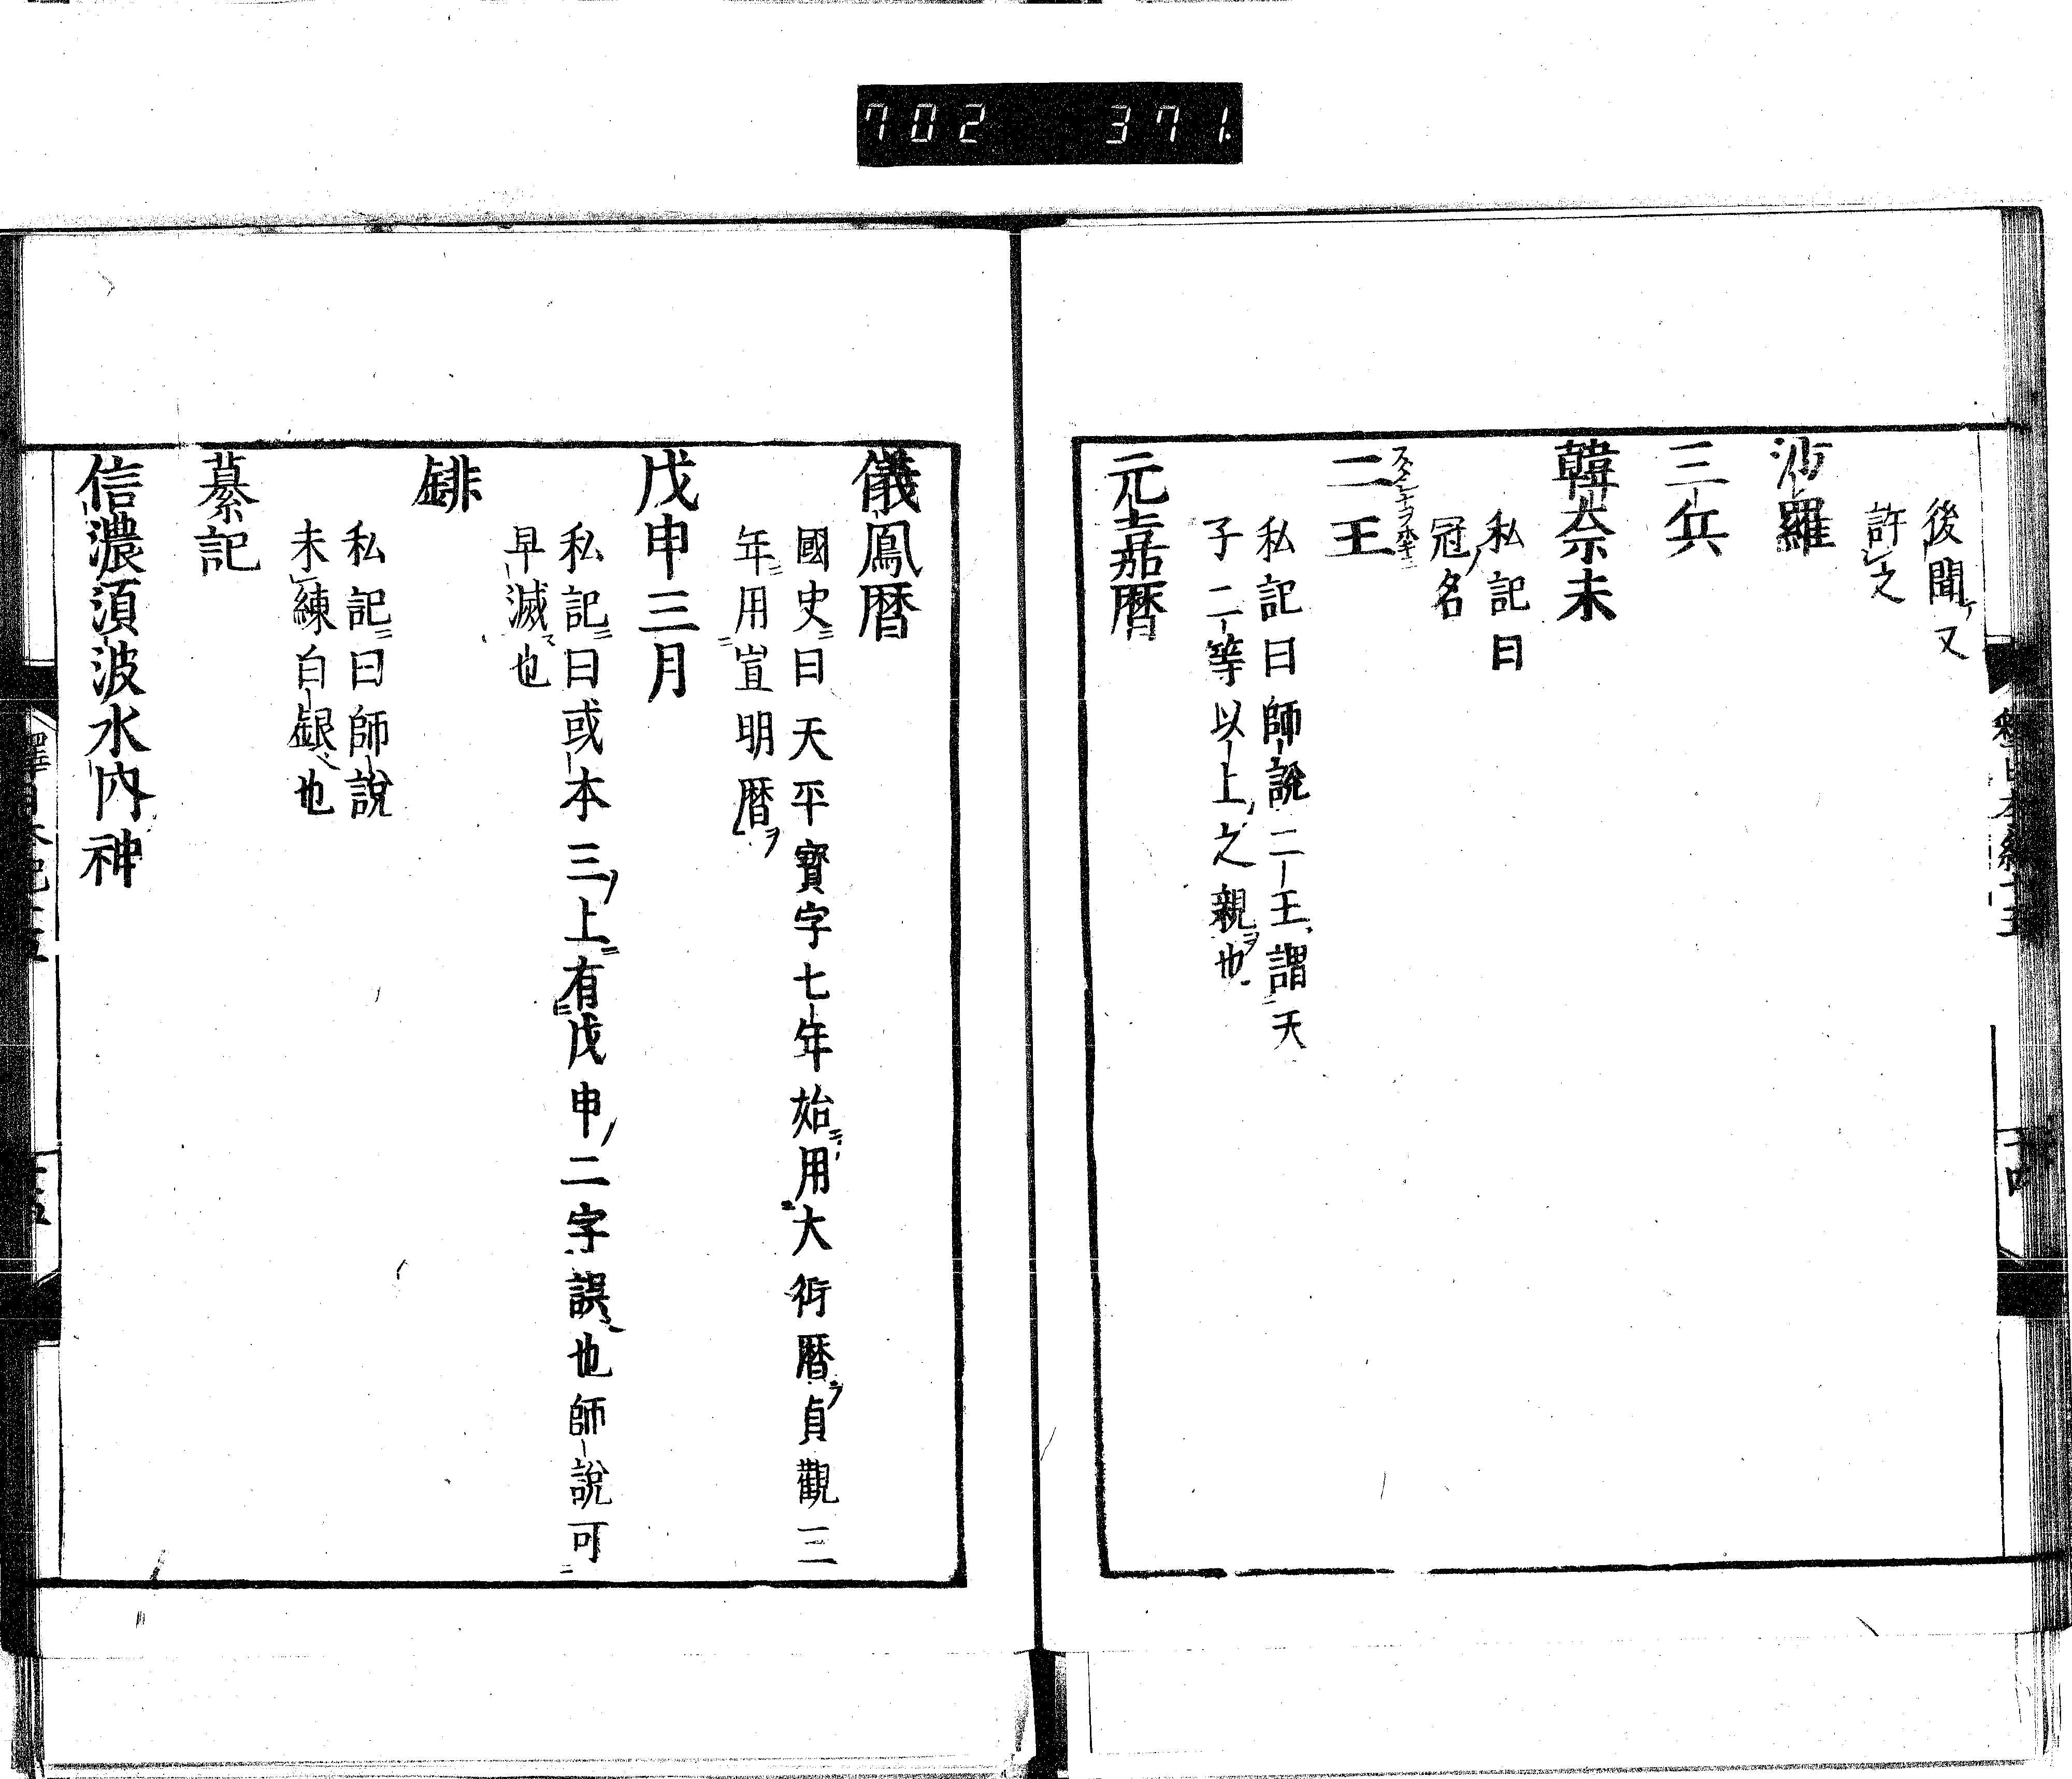 702 371
後聞又
許之
沙羅
三兵
韓奈末
私記曰
冠名
二王
私記曰師說二王謂天
子二等以上之親也
元嘉暦
儀鳳暦
國史曰天平寳字七年始用大衍暦貞觀三
年用宣明暦
戊申三月
私記曰或本三上有戊申二字誤也師說可
早滅也
私記曰師說
未練白銀也
綦記
信濃須波水内神